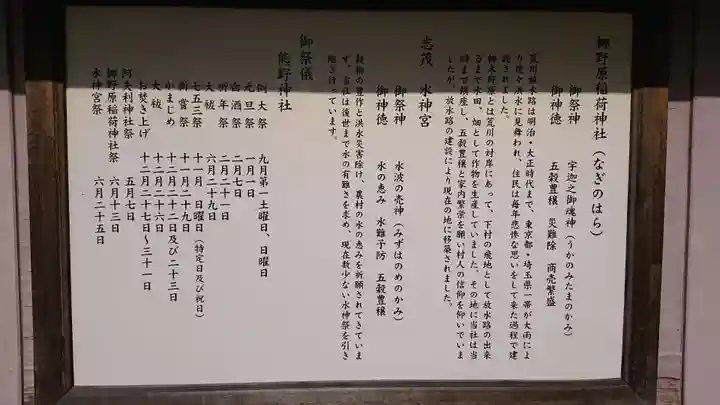 梛野原稲荷神社(なぎのはら)
御祭神 宇迦之御魂神(うかのみたまのかみ)
御神徳 五穀豊穣 災難除 商売繁盛
荒川放水路は明治・大正時代まで、東京都・埼玉県一帯が大雨によ
り度々洪水に見舞われ、住民は毎年悲惨な思いをして来た過程で建
設されました。
梛木野原とは荒川の対岸にあって、下村の飛地として放水路の出来
るまで水田、畑として作物を生産していました。その地に当社は当
時まで鎮座し、五穀豊穣と家内繁栄を願い村人の信仰を仰いでいま
したが、放水路の建設により現在の地に移築されました。
志茂 水神宮
御祭神 水波の売神(みずはのめのかみ)
御神徳 水の恵み 水難予防 五穀豊穣
穀物の豊作と洪水災害除け、農村の水の恵みを祈願されてきていま
す。当社は後世まで水の有難さを求め、現在数少ない水神祭を引き
継ぎ行っています。
御祭儀
熊野神社
例大祭 九月第一土曜日、日曜日
元旦祭 一月一日
白酒祭 二月七日
祈年祭 二月二十一日
大祓 六月二十九日
七五三祭 十一月 日曜日(特定日及び祝日)
新嘗祭 十一月二十九日
かまじめ 十二月二十二日及び二十三日
大祓 十二月二十六日
お焚き上げ 十二月二十七日~三十一日
阿夫利神社祭 五月七日
梛野原稲荷神社祭 六月十三日
水神宮祭 六月二十五日